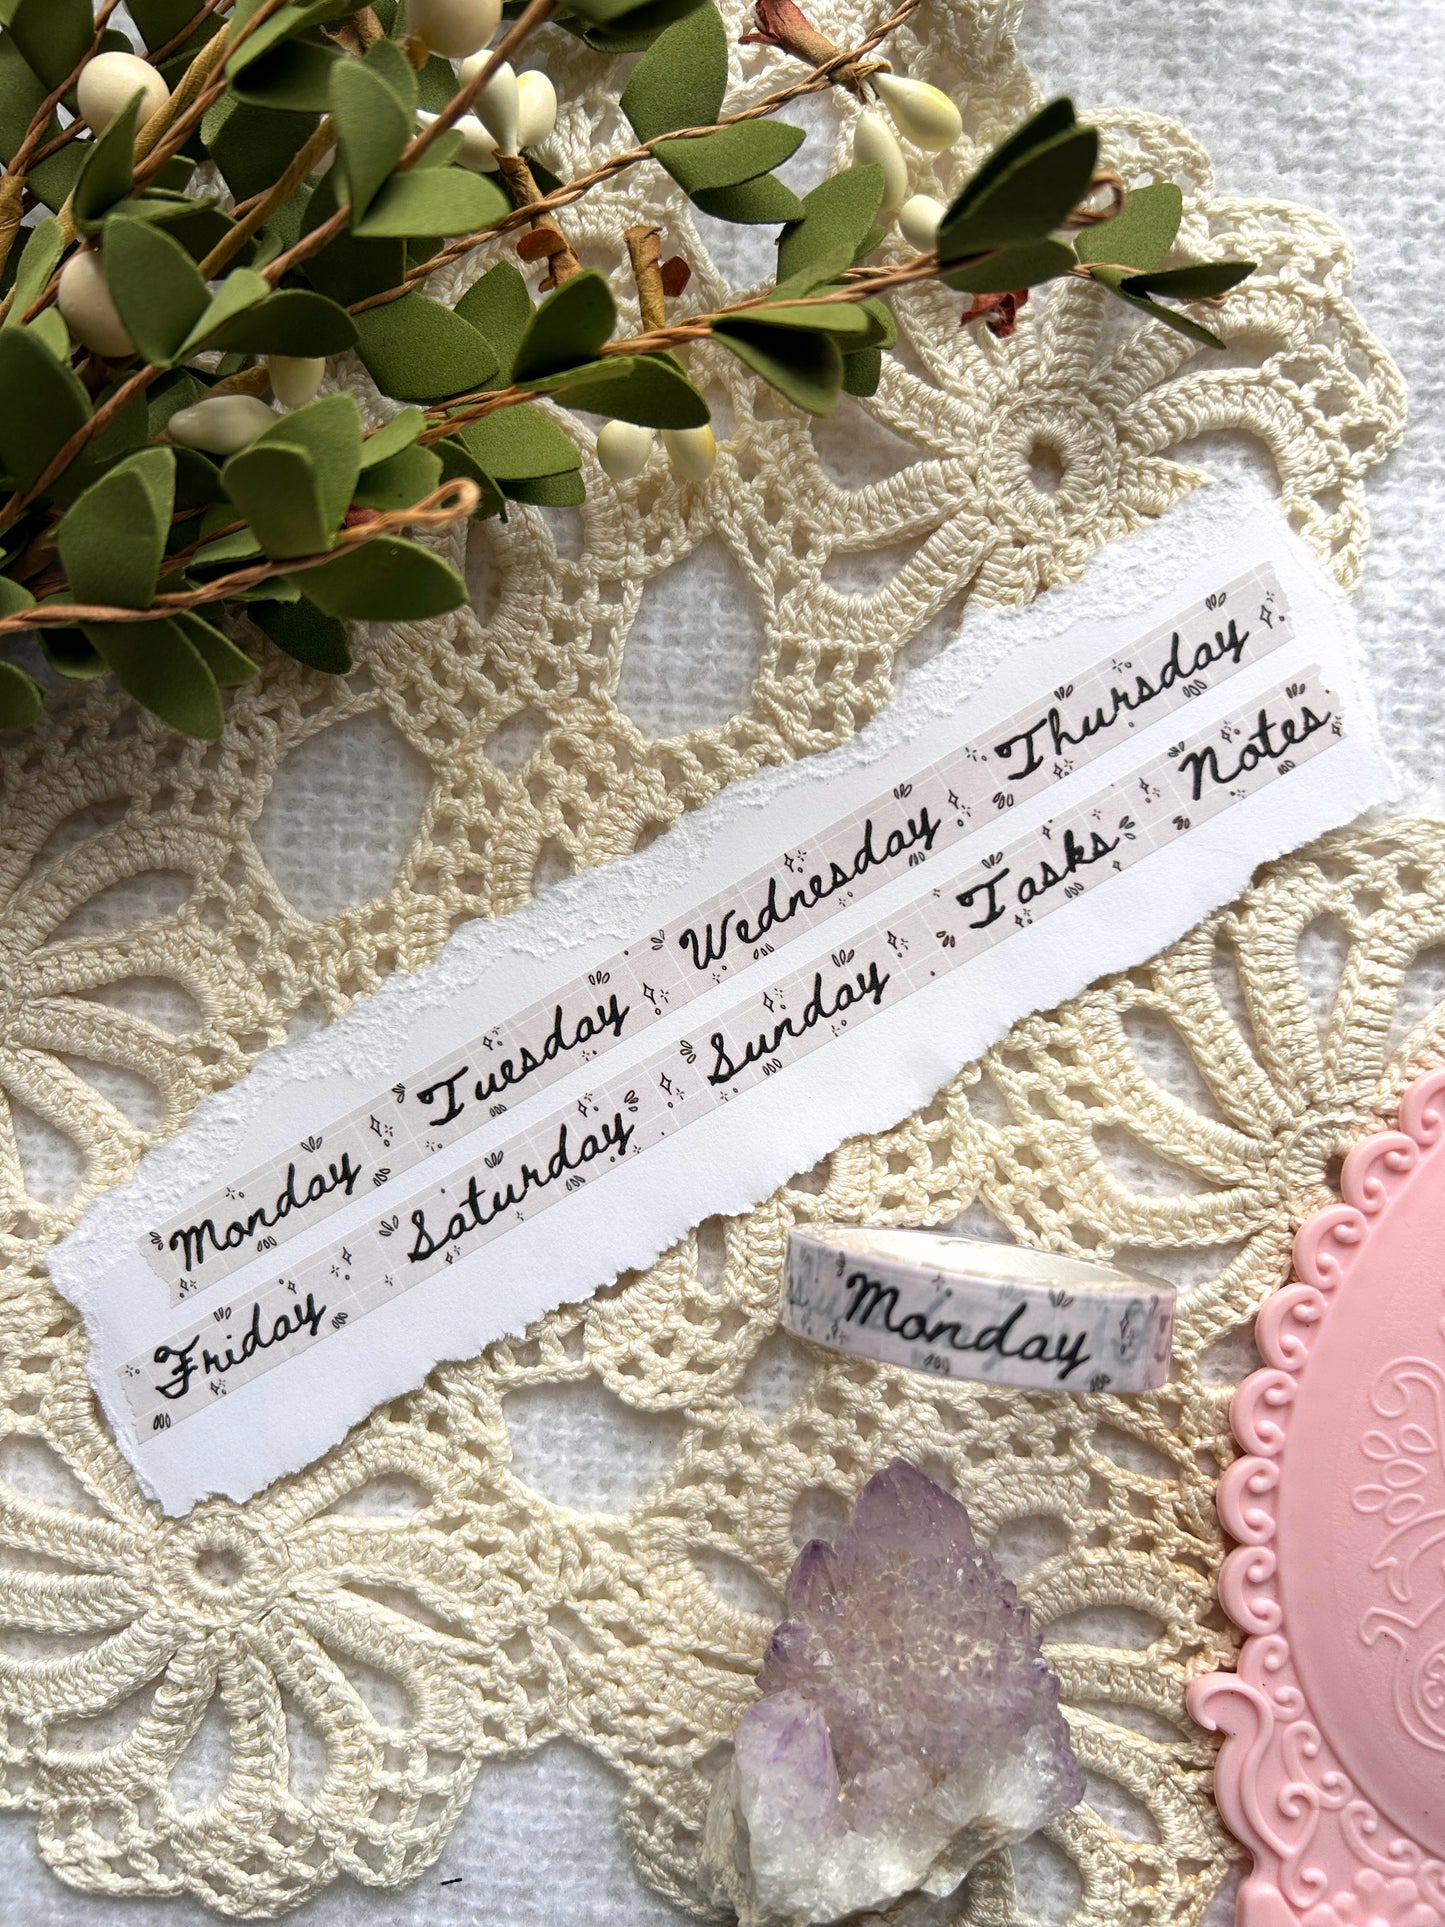 Monday Tuesday Wednesday Thursday
Friday Saturday Sunday Tasks Notes
Monday